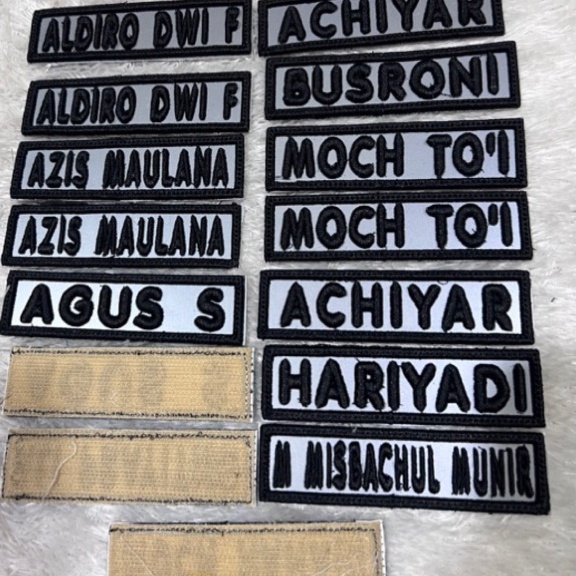 ALDIRO DWI F
ALDIRO DWI F
AZIS MAULANA
AZIS MAULANA
AGUS S
ACHIYAR
BUSRONI
MOCH TO'I
MOCH TO'I
ACHIYAR
HARIYADI
M MISBACHUL MUNIR